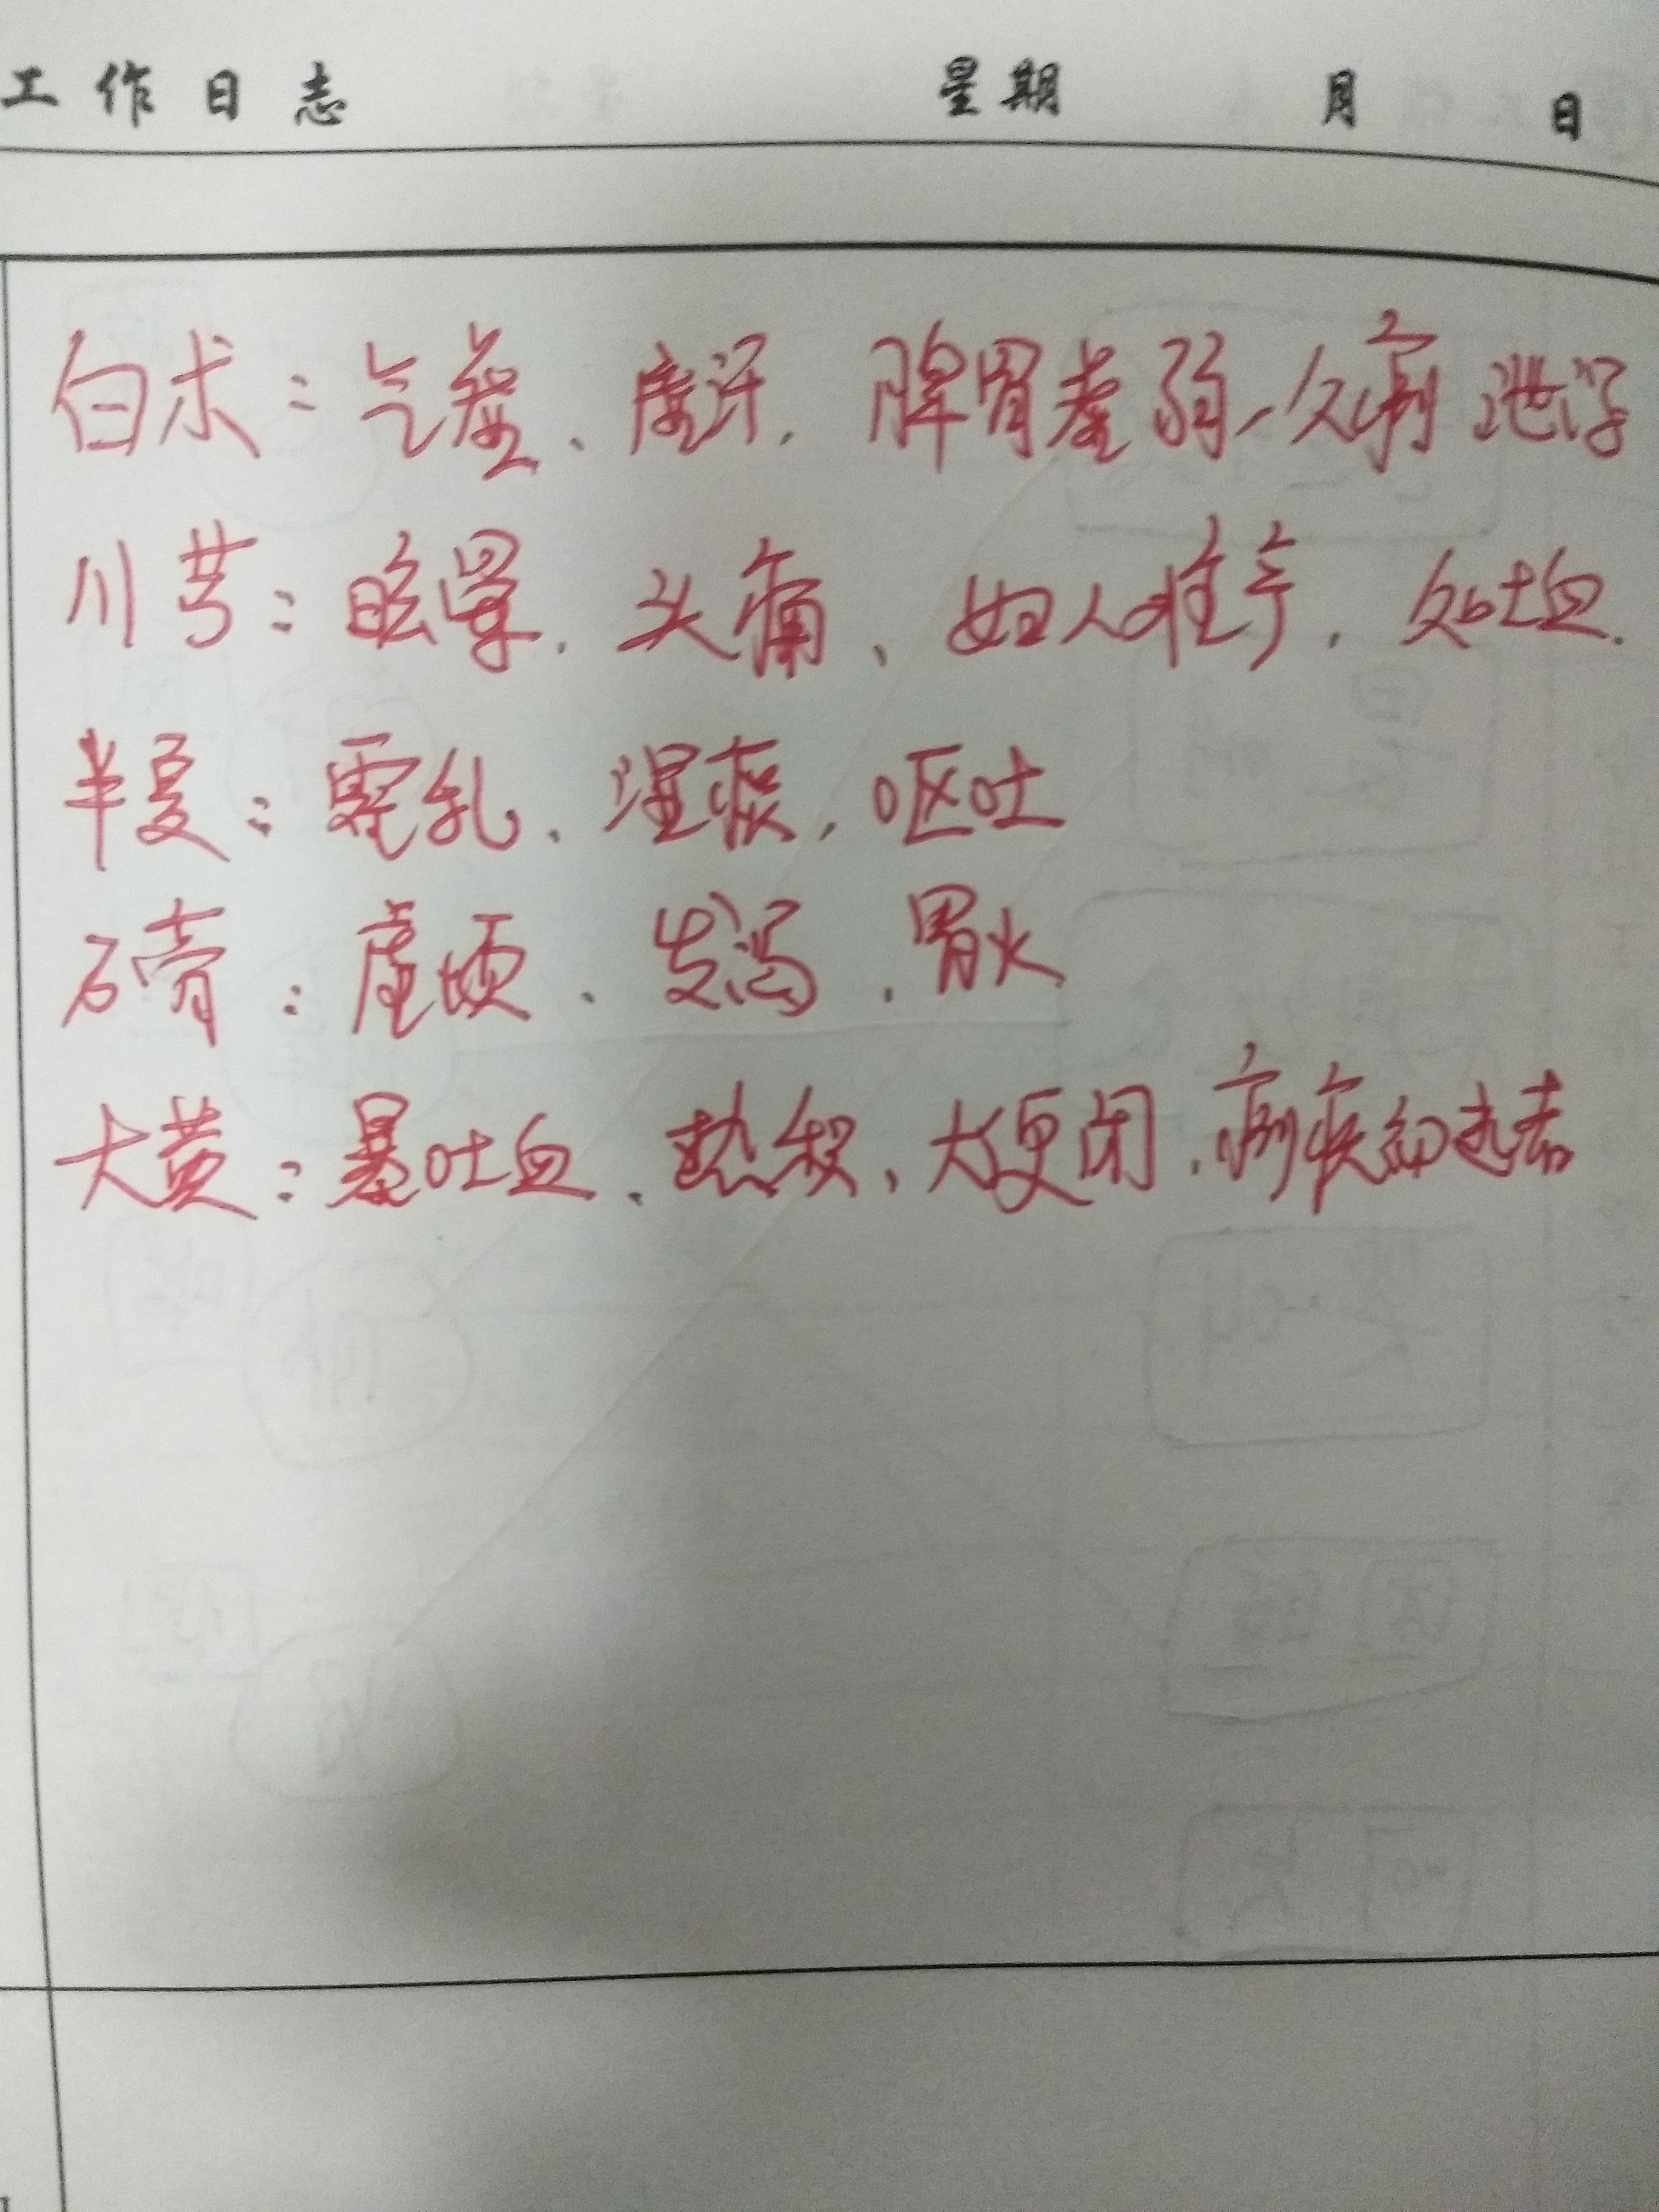 工作日志 星期 月 日
白术：气虚、虚汗，脾胃虚弱、久痢泄泻
川芎：眩晕，头痛、妇人难产，久吐血.
半夏：霍乱、湿痰，呕吐
石膏：虚烦、发渴，胃火
大黄：暴吐血、热积、大便闭，痢疾初起者